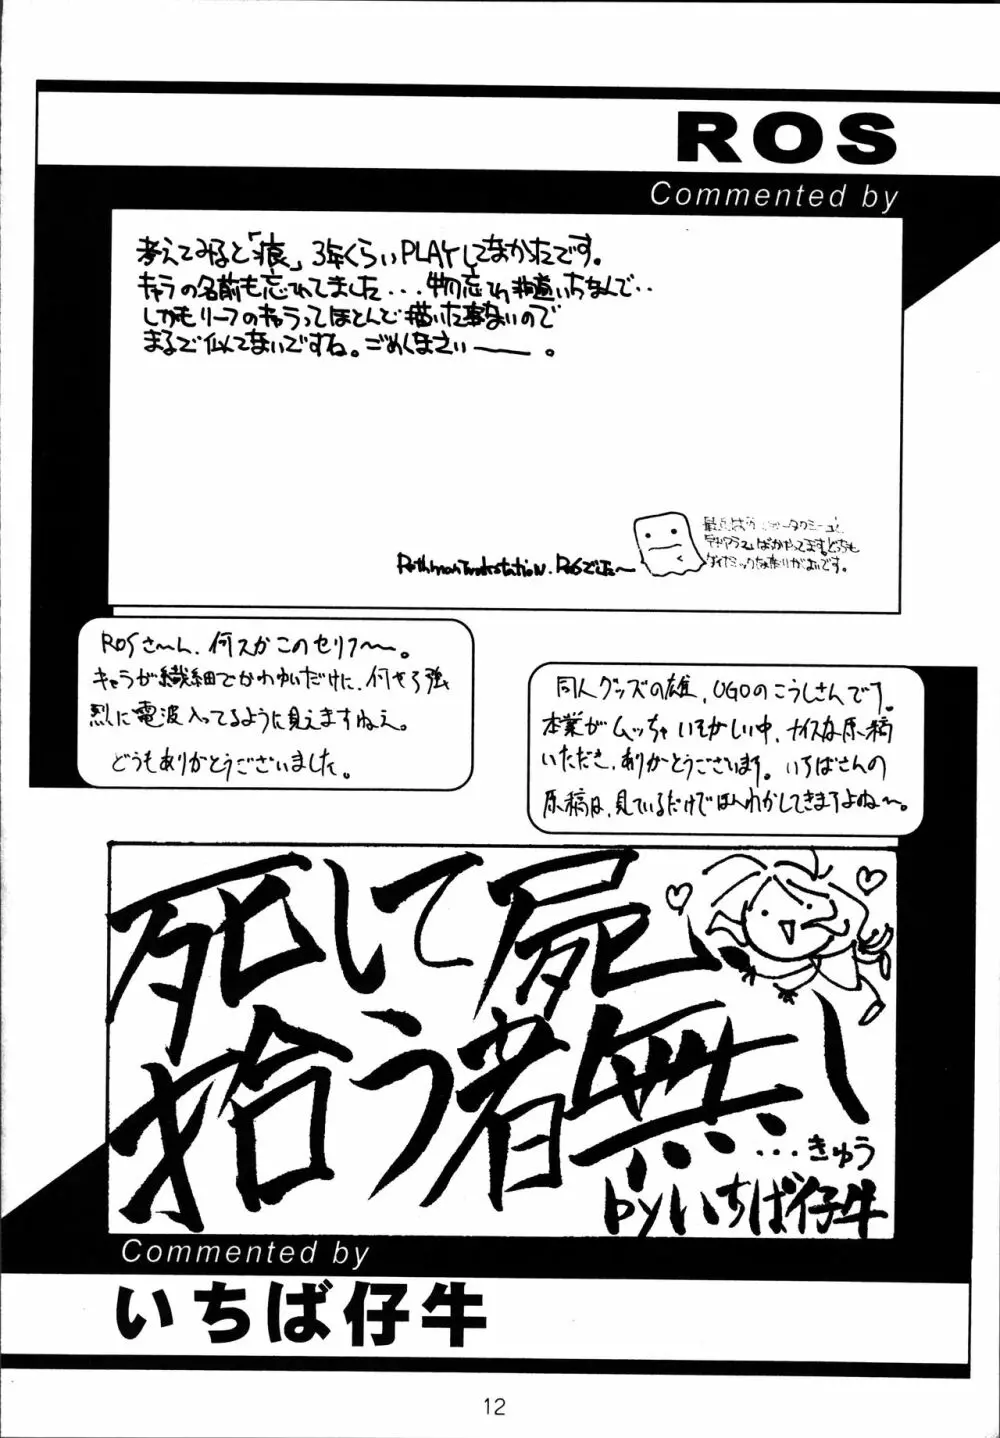 ROS
Commented by
考えてみると「痕」3年くらいPLAYしてなかったです。
キャラの名前も忘れてました...物忘れ
しかもリーフのキャラってほとんど描いた事ないので
まるで似てないですね。ごめんなさいーー。
ばかやってます。どちらも
ダイナミックな
ROSさ〜ん、何スかこのセリフ〜〜。
キャラが繊細でかわゆいだけに、何やら強
烈に電波入ってるように見えますねえ。
どうもありがとうございました。
同人グッズの雄、UGOのこうしさんです。
本業がムッチャいそがしい中、ナイスな原稿
いただき、ありがとうございます。いちばさんの
原稿は、見ているだけでほんわかしてきますよね〜。
死して屍
拾う者無し
...きゅう
byいちば仔牛
Commented by
いちば仔牛
12